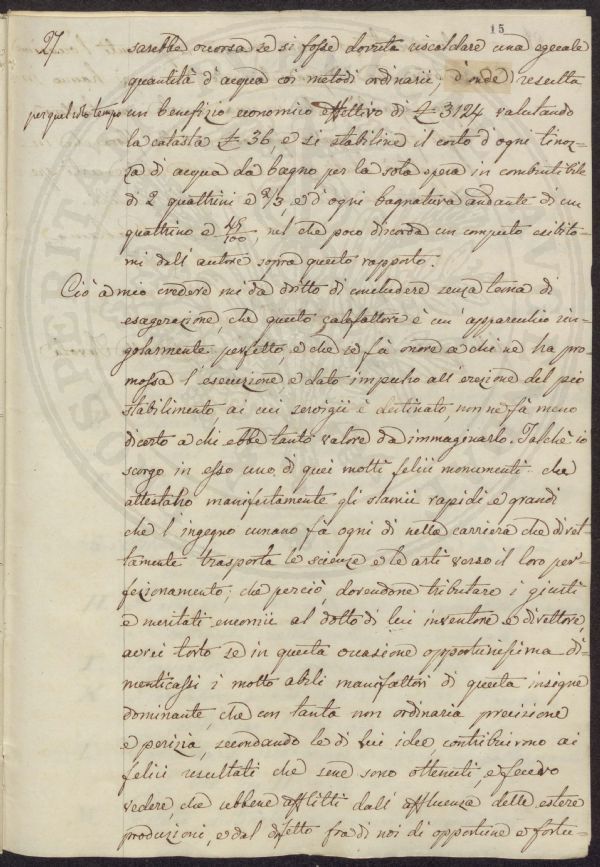 15
27
sarebbe occorsa se si fosse dovuta riscaldare una eguale
quantità d'acqua coi metodi ordinarii; d'onde resulta
per quel solo tempo un benefizio economico effettivo di £ 3124 valutando
la catasta £ 36, e si stabilirà il costo d'ogni tinoz-
za di acqua da bagno per la sola spesa in combustibile
di 2 quattrini e 2/3 e d'ogni bagnatura andante di un
quattrino e 45/100, nel che poco discorda un computo esibito-
mi dall'autore sopra questo rapporto.
Ciò a mio credere mi dà dritto di concludere senza tema di
esagerazione, che questo calefattore è un'apparecchio sin-
golarmente perfetto, e che se fà onore a chi ne ha pro-
mossa l'esecuzione, e dato impulso all'erezione del pio
stabilimento ai cui servigii è destinato, non ne fà meno
di certo a chi ebbe tanto valore da immaginarlo. Talchè io
scorgo in esso uno di quei molti felici monumenti che
attestano manifestamente gli slancii rapidi e grandi
che l'ingegno umano fà ogni dì nella carriera che diret-
tamente trasporta le scienze e le arti verso il loro per-
fezionamento; che perciò, dovendone tributare i giusti
e meritati encomii al dotto di lui inventore e direttore,
avrei torto se in questa occasione opportunissima di-
menticassi i molto abili manifattori di questa insigne
dominante, che con tanta non ordinaria precisione
e perizia, secondando le di lui idee contribuirono ai
felici resultati che sene sono ottenuti, e fecero
vedere, che sebbene afflitti dall'affluenza delle estere
produzioni, e dal difetto fra di noi di opportune e fortu-